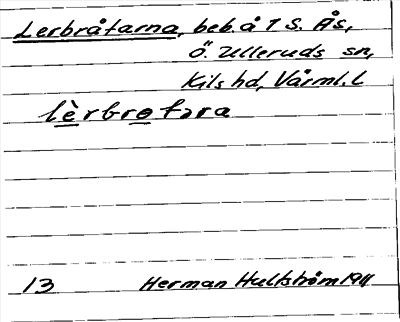 Lerbråtarna, beb. å T S. Ås,
Ö. Ulleruds sn,
Kils hd, Värml. L
lèrbrotara
13 Herman Hultström 1911